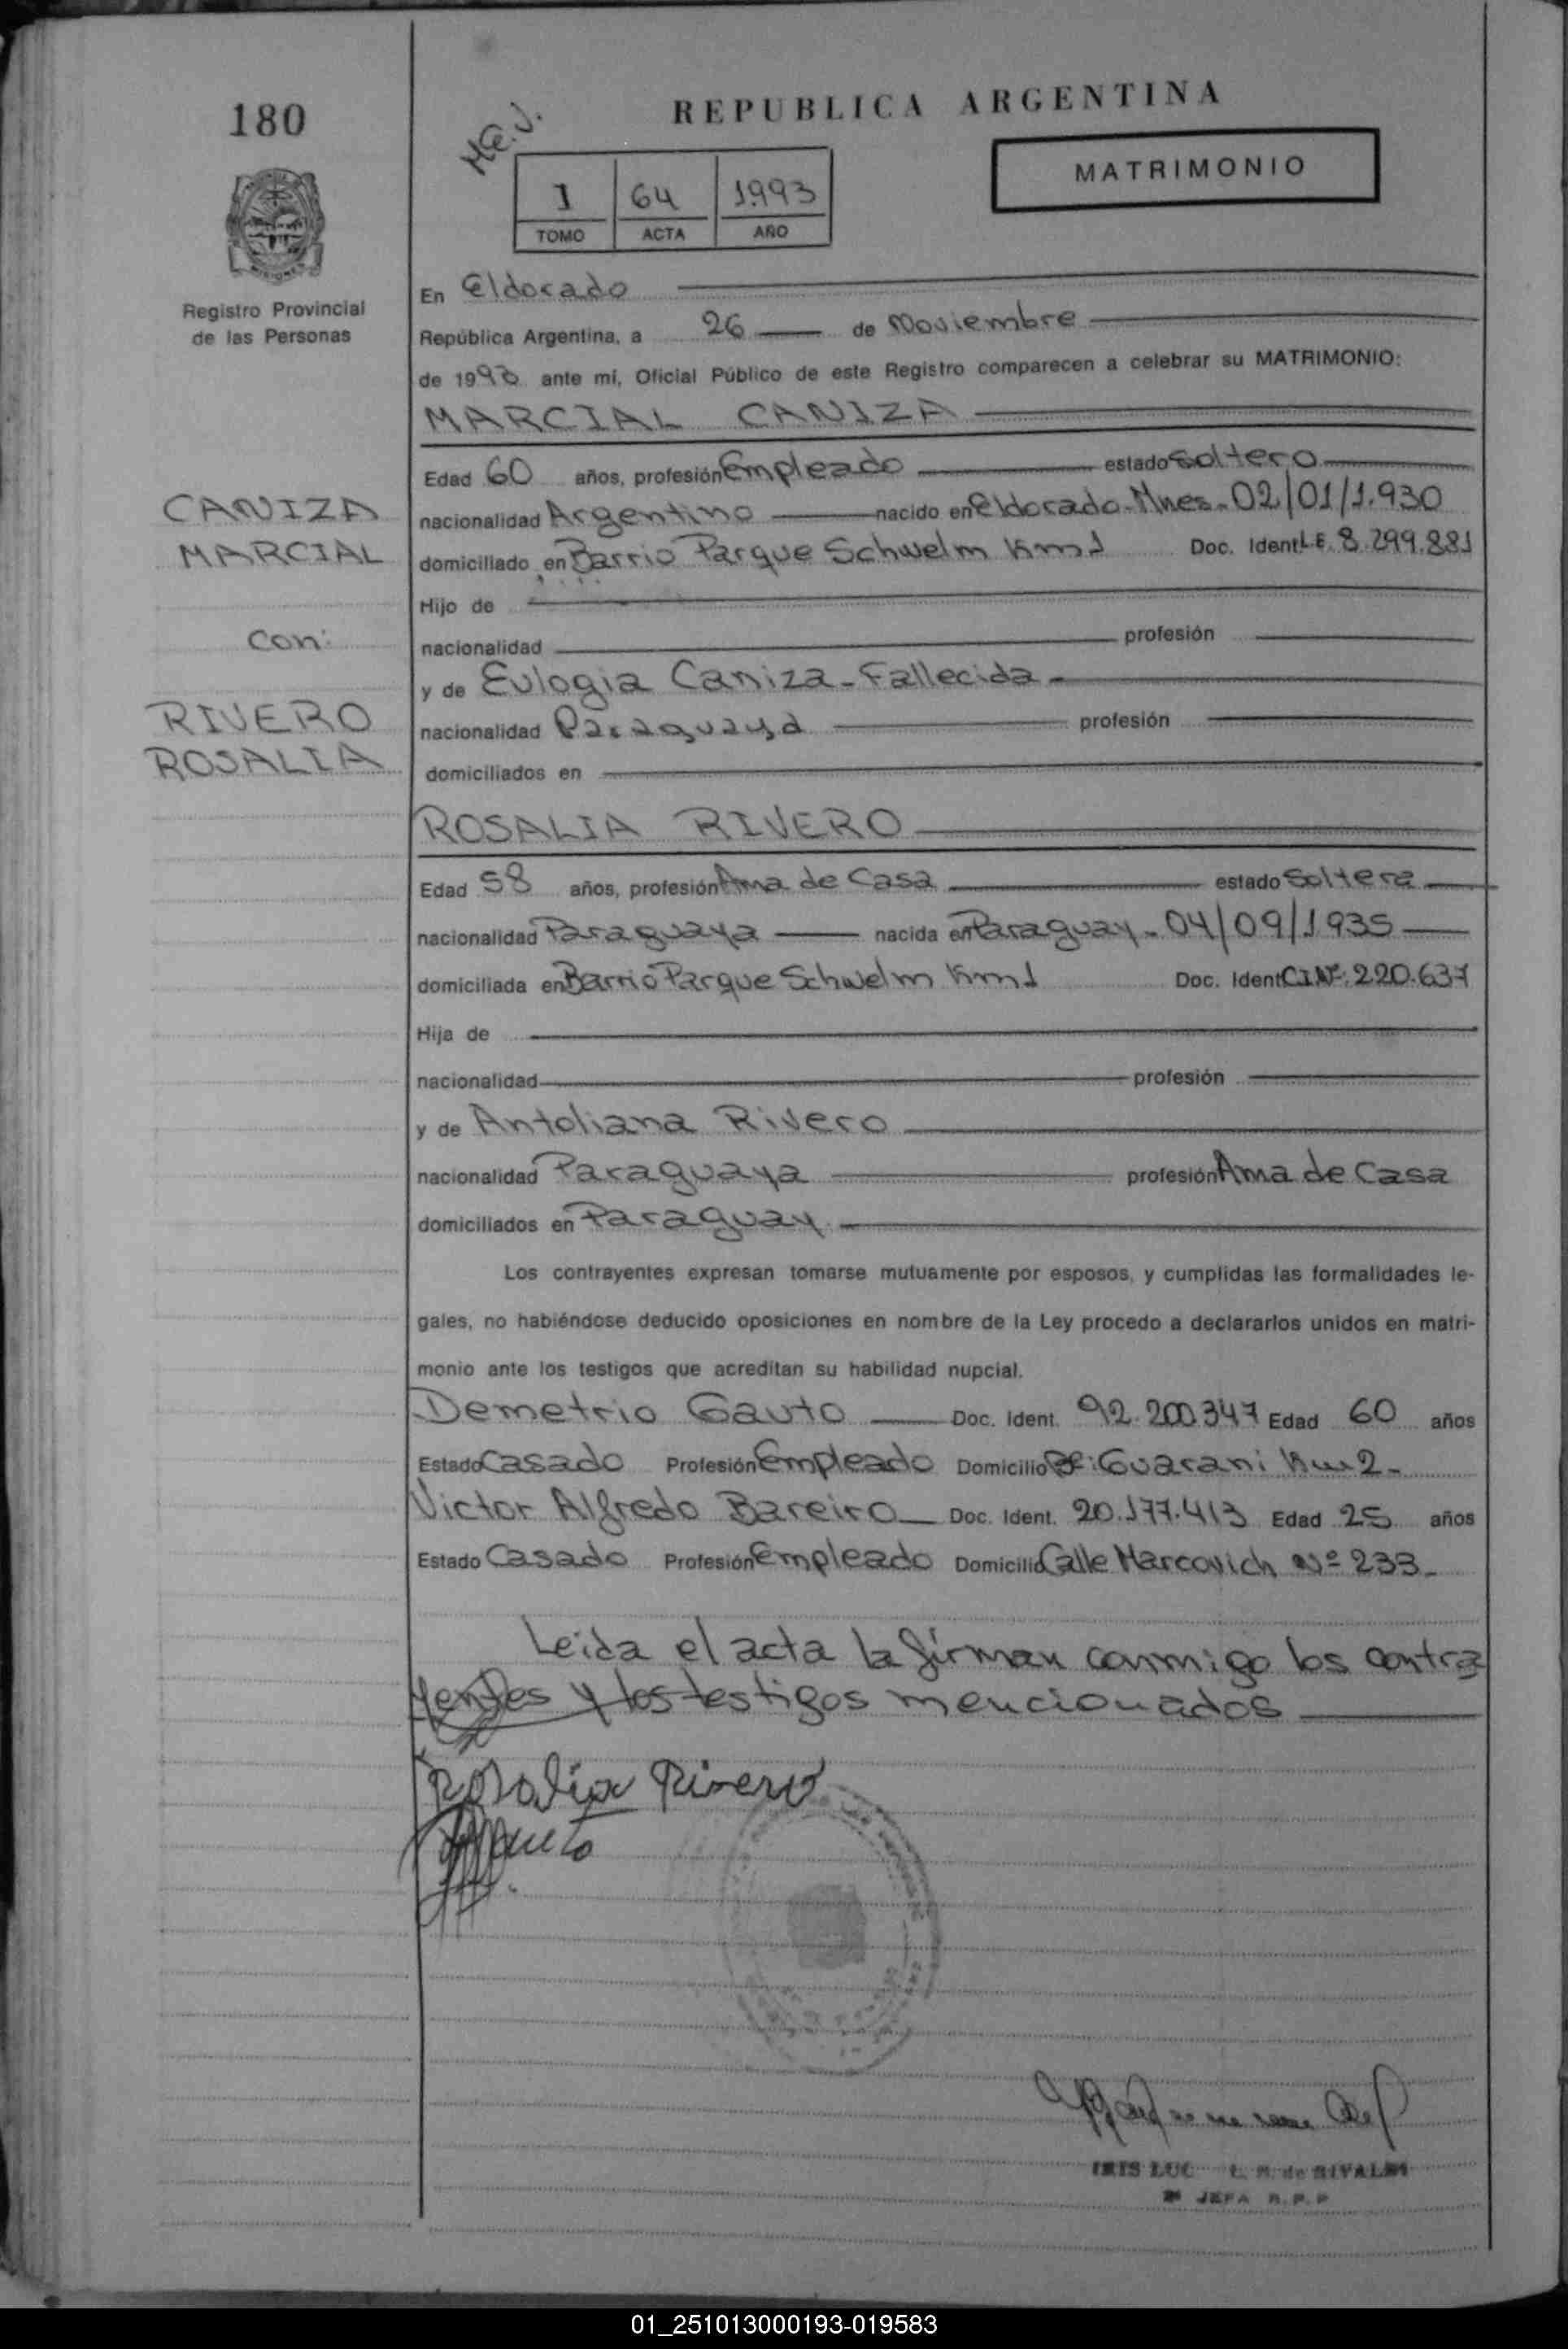 180
REPUBLICA ARGENTINA
MATRIMONIO
I 64 1993
TOMO ACTA AÑO
MISIONES
Registro Provincial
de las Personas
En Eldorado
República Argentina, a 26 de Noviembre
de 1993 ante mí, Oficial Público de este Registro comparecen a celebrar su MATRIMONIO:
MARCIAL CANIZA
Edad 60 años, profesión Empleado estado Soltero
CANIZA
MARCIAL
nacionalidad Argentino nacido en Eldorado-Mnes-02/01/1.930
domiciliado en Barrio Parque Schwelm Km 1 Doc. Ident L.E. 8.299.881
Hijo de
con:
nacionalidad profesión
y de Eulogia Caniza-Fallecida-
RIVERO
ROSALIA
nacionalidad Paraguaya profesión
domiciliados en
ROSALIA RIVERO
Edad 58 años, profesión Ama de Casa estado Soltera
nacionalidad Paraguaya nacida en Paraguay-04/09/1935
domiciliada en Barrio Parque Schwelm Km 1 Doc. Ident C.I.Nº: 220.637
Hija de
nacionalidad profesión
y de Antoliana Rivero
nacionalidad Paraguaya profesión Ama de Casa
domiciliados en Paraguay-
Los contrayentes expresan tomarse mutuamente por esposos, y cumplidas las formalidades le-
gales, no habiéndose deducido oposiciones en nombre de la Ley procedo a declararlos unidos en matri-
monio ante los testigos que acreditan su habilidad nupcial.
Demetrio Gauto Doc. Ident. 92.200.347 Edad 60 años
Estado Casado Profesión Empleado Domicilio Guarani Km 2-
Victor Alfredo Bareiro Doc. Ident. 20.177.413 Edad 25 años
Estado Casado Profesión Empleado Domicilio Calle Marcovich Nº 233-
Leida el acta la firman conmigo los contra
yentes y los testigos mencionados
Rosalia Rivero
IRIS LUC L. M. de RIVALDI
JEFA R.P.P
01_251013000193-019583